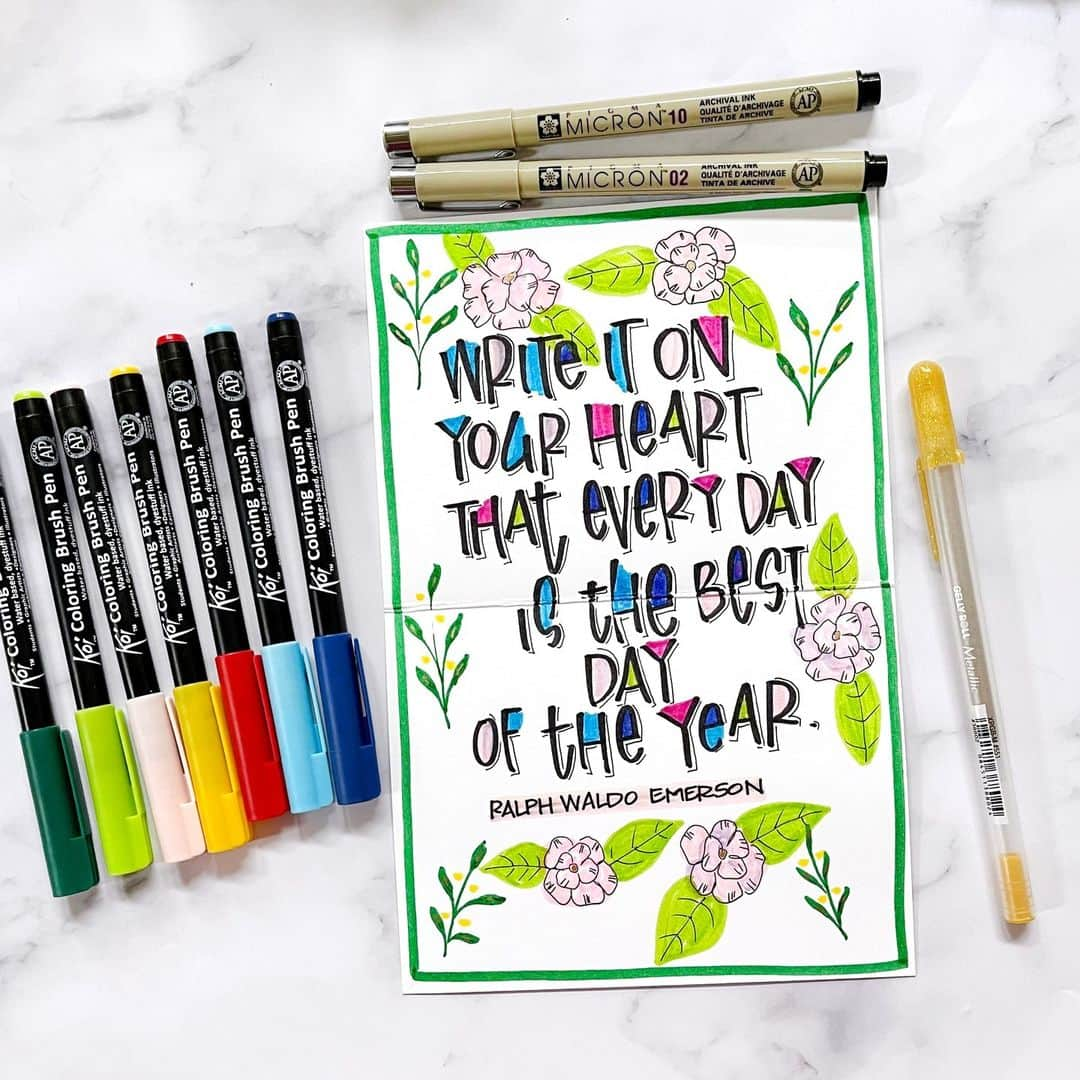 PIGMA
MICRON™ 10
ARCHIVAL INK
QUALITÉ D'ARCHIVAGE
TINTA DE ARCHIVE
AP
PIGMA
MICRON™ 02
ARCHIVAL INK
QUALITÉ D'ARCHIVAGE
TINTA DE ARCHIVE
AP
WRITE IT ON
YOUR HEART
THAT EVERY DAY
IS the BEST
DAY
OF the YEAR.
RALPH WALDO EMERSON
Koi™ Coloring Brush Pen
Water based, dyestuff ink
AP
Koi™ Coloring Brush Pen
Water based, dyestuff ink
AP
Koi™ Coloring Brush Pen
Water based, dyestuff ink
AP
Koi™ Coloring Brush Pen
Water based, dyestuff ink
AP
Koi™ Coloring Brush Pen
Water based, dyestuff ink
AP
Koi™ Coloring Brush Pen
Water based, dyestuff ink
AP
GELLY ROLL Metallic